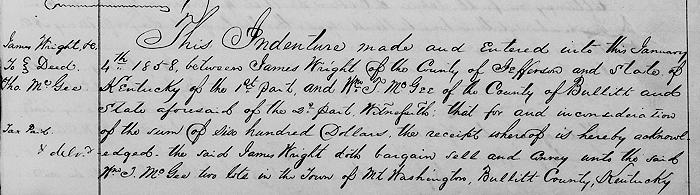 James Wright, &c.
To } Deed.
Tho. McGee
Tax Paid
& delv.d
This Indenture made and Entered into this January
4th 1858, between James Wright of the County of Jefferson and State of
Kentucky of the 1st part, and Wm. T. McGee of the County of Bullitt and
State aforesaid of the 2d. part. Witnesseth: that for and inconsideration
of the sum of six hundred Dollars, the receipt whereof is hereby acknowl
edged. the said James Wright doth bargain sell and convey unto the said
Wm. T. McGee two lots in the Town of Mt Washington, Bullitt County, Kentucky